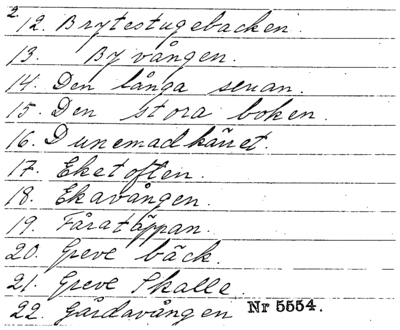 2
12. Brytestugebacken.
13. Byvången.
14. Den långa seuan.
15. Den stora boken.
16. Dunemadkäret.
17. Eketoften.
18. Ekavången.
19. Fåratäppan.
20. Greve bäck.
21. Greve Skalle.
22. Gårdavången Nr 5554.